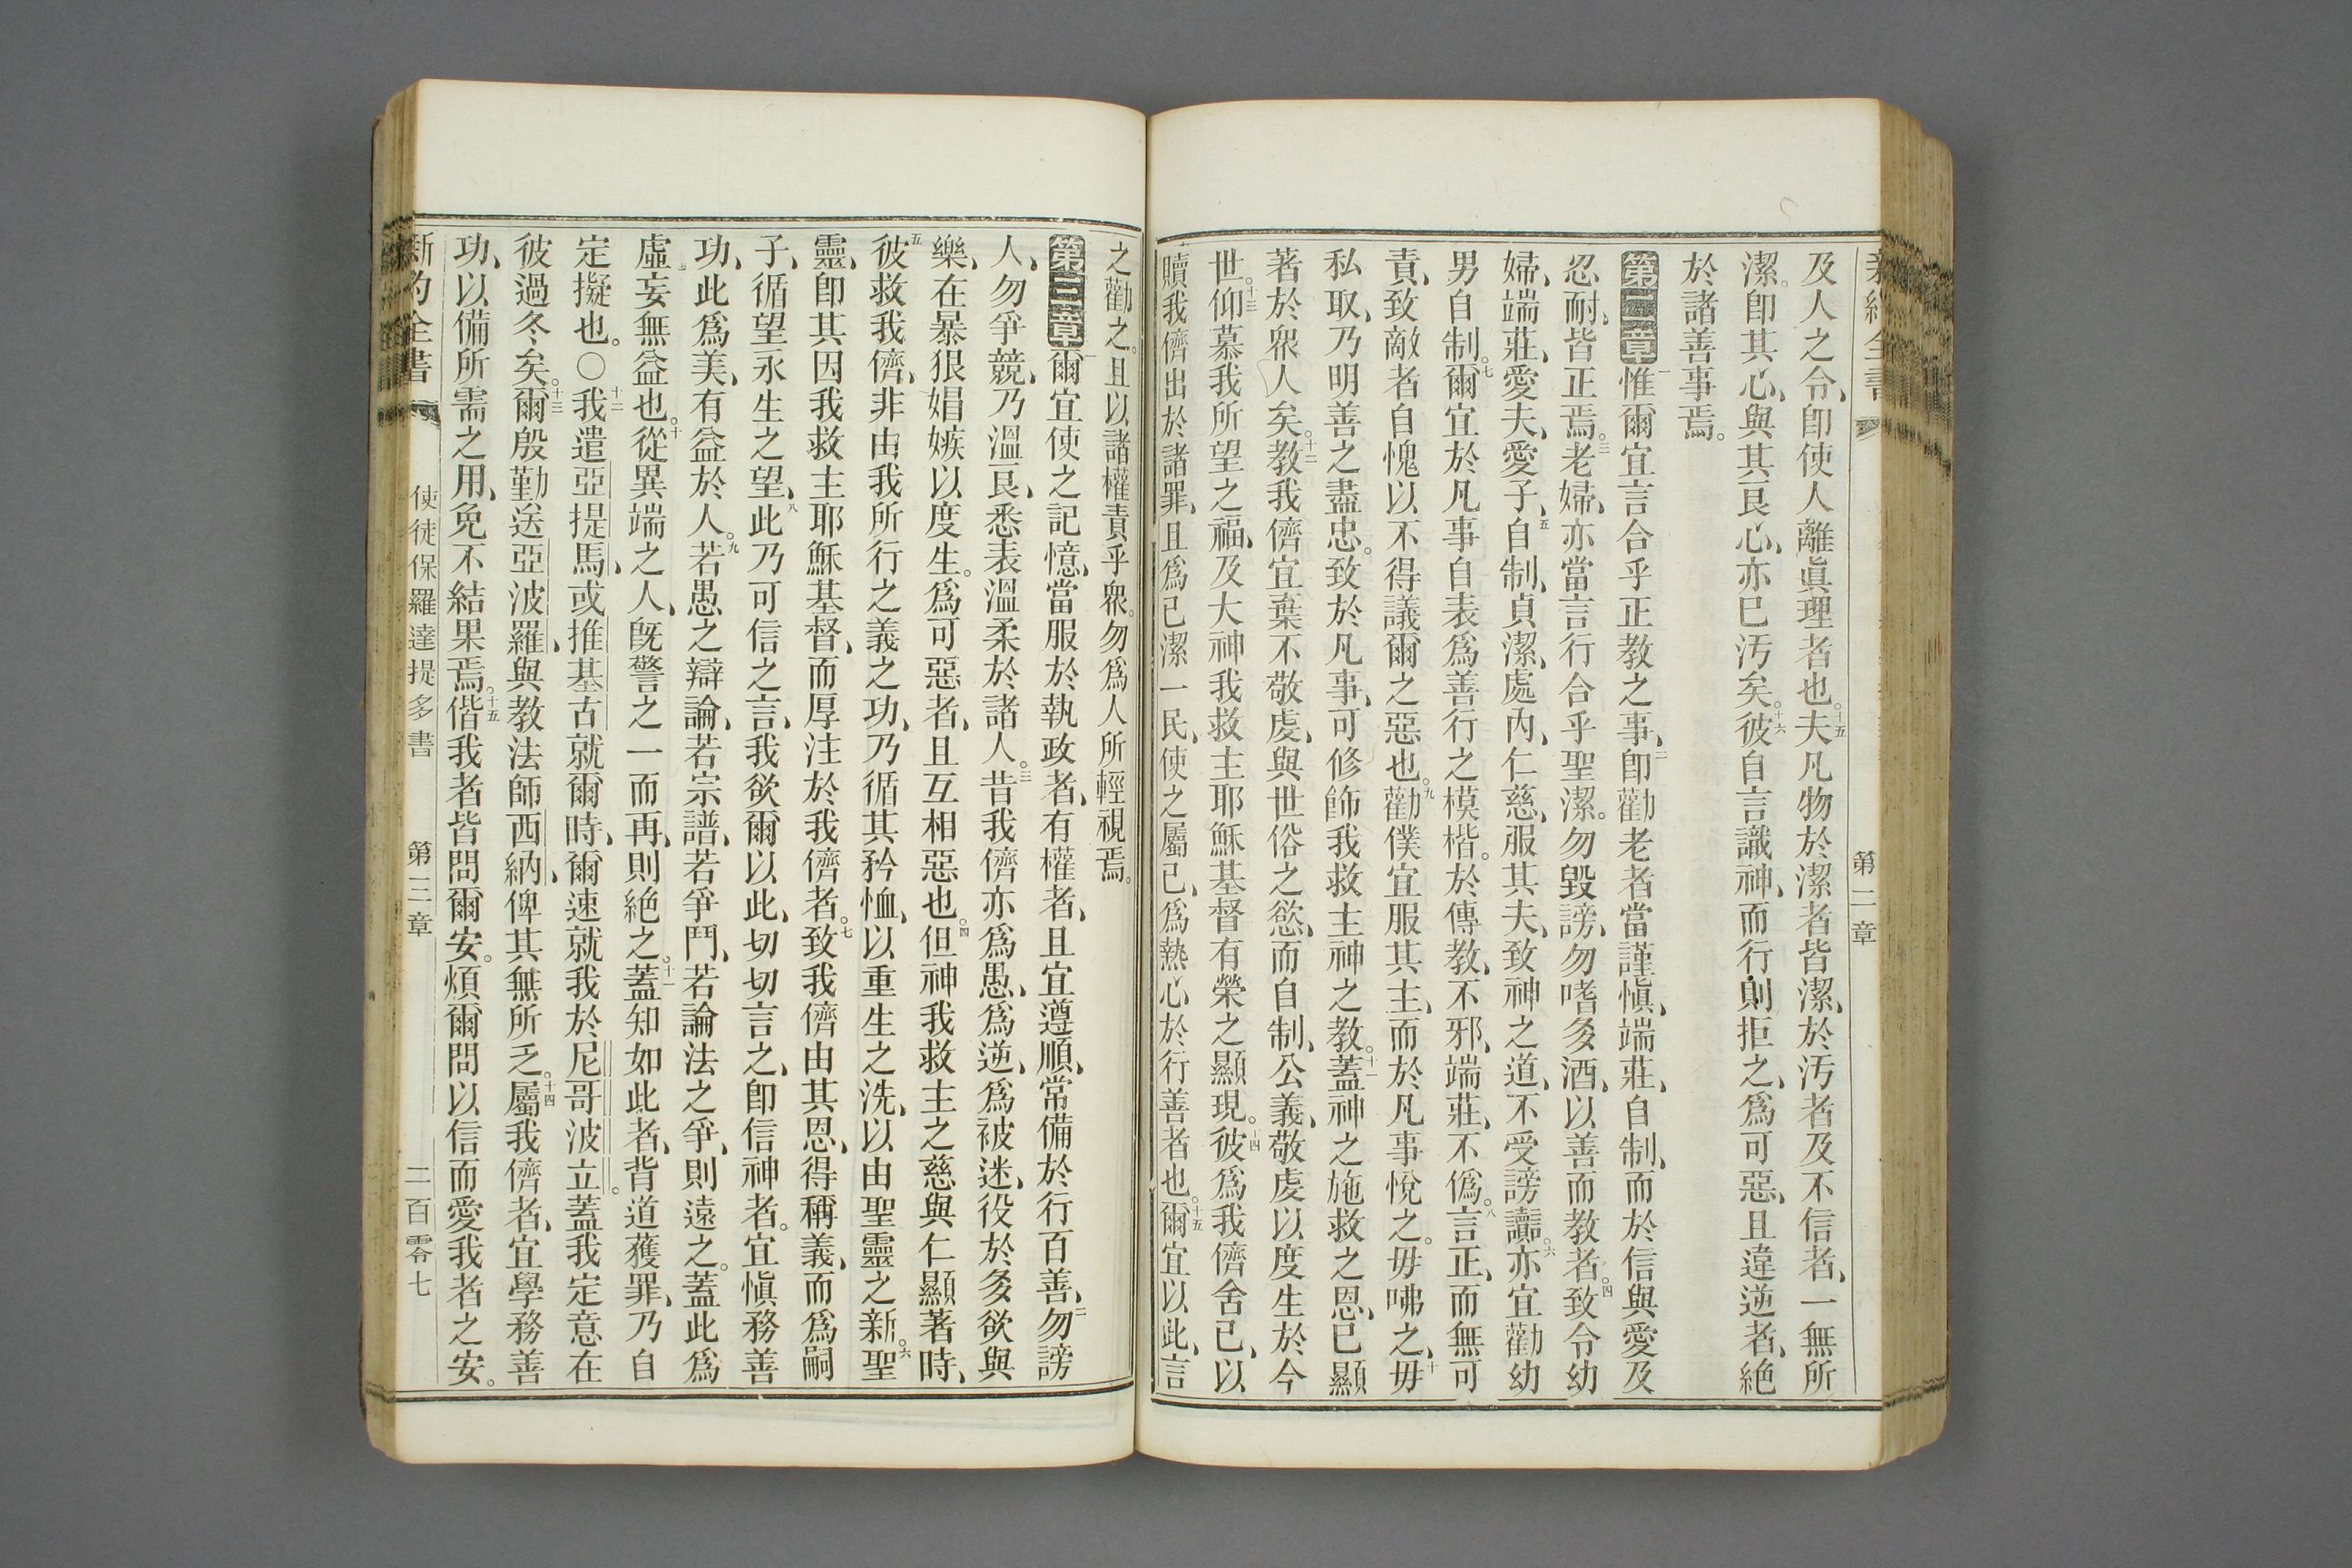 新約全書 第二章
及人之令、卽使人離眞理者也。十五夫凡物於潔者皆潔、於汚者及不信者、一無所
潔。卽其心、與其良心、亦已汚矣。十六彼自言識神、而行則拒之、爲可惡、且違逆者、絕
於諸善事焉。
第二章一惟爾宜言合乎正教之事、二卽勸老者當謹愼、端莊、自制、而於信與愛及
忍耐、皆正焉。三老婦、亦當言行合乎聖潔。勿毀謗、勿嗜多酒、以善而教者。四致令幼
婦、端莊、愛夫、愛子、五自制、貞潔、處內、仁慈、服其夫、致神之道、不受謗讟。六亦宜勸幼
男自制。七爾宜於凡事自表爲善行之模楷。於傳教、不邪、端莊、不僞。八言正、而無可
責、致敵者自愧以不得議爾之惡也。九勸僕宜服其主、而於凡事悅之。毋咈之、十毋
私取、乃明善之盡忠。致於凡事、可修飾我救主神之教。十一蓋神之施救之恩、已顯
著於衆人矣。十二教我儕宜棄不敬虔、與世俗之慾、而自制、公義、敬虔以度生於今
世。十三仰慕我所望之福、及大神我救主耶穌基督有榮之顯現。十四彼爲我儕舍己、以
贖我儕出於諸罪、且爲己潔一民、使之屬己、爲熱心於行善者也。十五爾宜以此、言
之勸之。且以諸權責乎衆。勿爲人所輕視焉。
第三章一爾宜使之記憶、當服於執政者、有權者、且宜遵順、常備於行百善、二勿謗
人、勿爭競、乃溫良、悉表溫柔於諸人。三昔我儕亦爲愚、爲逆、爲被迷、役於多欲與
樂、在暴狠娼嫉以度生。爲可惡者、且互相惡也。四但神我救主之慈與仁顯著時、
五彼救我儕、非由我所行之義之功、乃循其矜恤、以重生之洗、以由聖靈之新。六聖
靈、卽其因我救主耶穌基督、而厚注於我儕者。七致我儕由其恩、得稱義、而爲嗣
子、循望永生之望、八此乃可信之言、我欲爾以此、切切言之、卽信神者。宜愼務善
功、此爲美、有益於人。九若愚之辯論、若宗譜、若爭鬥、若論法之爭、則遠之。蓋此爲
虛妄無益也。十從異端之人、旣警之一而再、則絕之。十一蓋知如此者、背道蒦罪、乃自
定擬也。○十二我遣亞提馬、或推基古就爾時、爾速就我於尼哥波立。蓋我定意在
彼過冬矣。十三爾殷勤送亞波羅、與教法師西納、俾其無所乏。十四屬我儕者、宜學務善
功、以備所需之用、免不結果焉。十五偕我者皆問爾安。煩爾問以信而愛我者之安。
新約全書 使徒保羅達提多書 第三章 二百零七